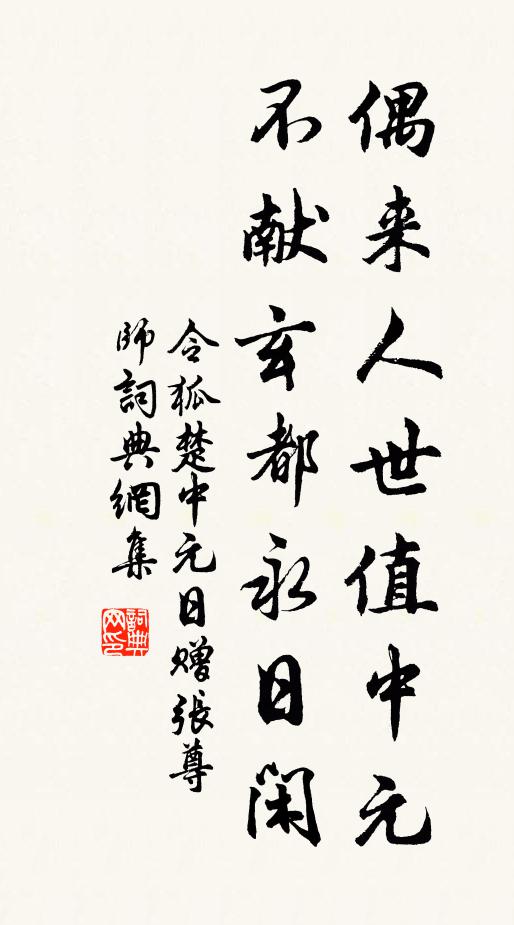 偶来人世值中元
不献玄都永日闲
令狐楚中元日赠張尊
師詞典網集
詞典
网印